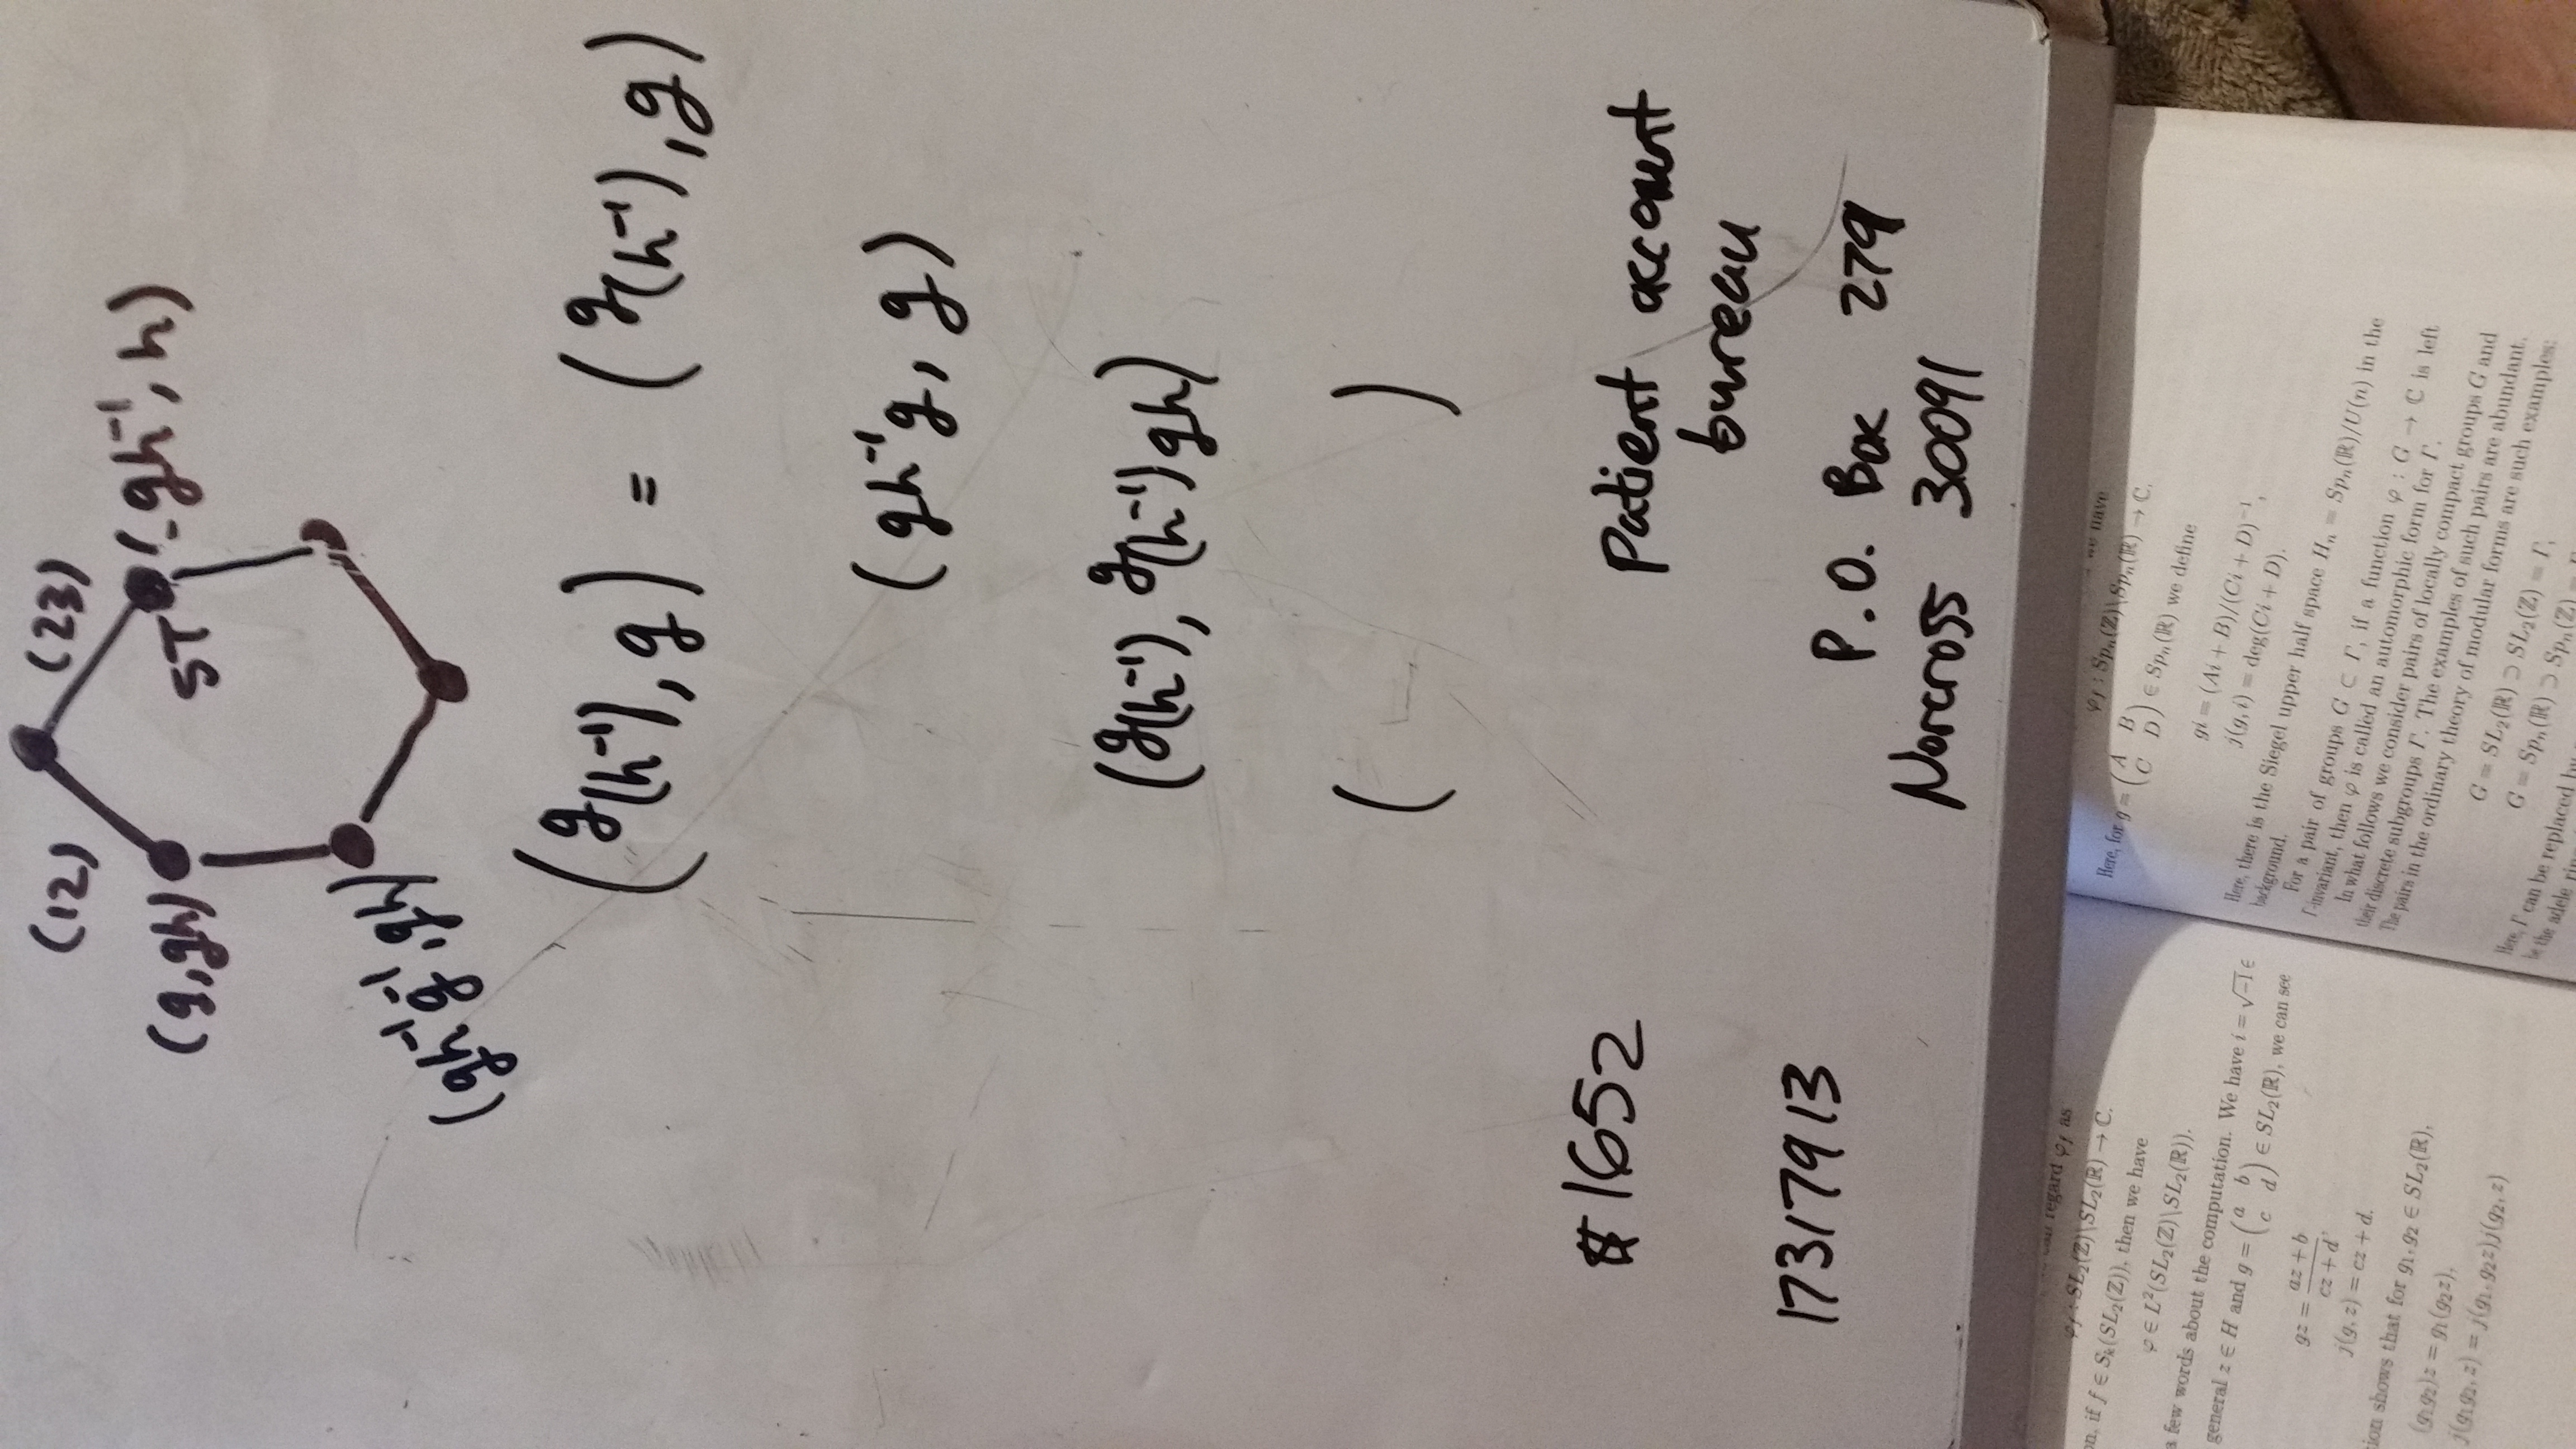 (12) (23)
(g,gh) ST (-gh⁻¹, h)
(gh⁻¹g⁻¹, gh)
(ᵍ(h⁻¹), g) = (ᵍ(h⁻¹), g)
(gh⁻¹g, g)
(ᵍ(h⁻¹), ᵍ(h⁻¹)gh)
( )
$1652
17317913
Patient account
bureau
P.O. Box 279
Norcross 30091
can regard φf as
φf : SL₂(ℤ)\SL₂(ℝ) → ℂ.
on, if f ∈ Sk(SL₂(ℤ)), then we have
φ ∈ L²(SL₂(ℤ)\SL₂(ℝ)).
a few words about the computation. We have i = √−1 ∈
general z ∈ H and g = (a b
c d) ∈ SL₂(ℝ), we can see
gz = (az + b)/(cz + d),
j(g, z) = cz + d.
tion shows that for g₁, g₂ ∈ SL₂(ℝ),
(g₁g₂)z = g₁(g₂z),
j(g₁g₂, z) = j(g₁, g₂z)j(g₂, z)
we have
φf : Spn(ℤ)\Spn(ℝ) → ℂ.
Here, for g = (A B
C D) ∈ Spn(ℝ) we define
gi = (Ai + B)/(Ci + D)⁻¹,
j(g, i) = deg(Ci + D).
Here, there is the Siegel upper half space Hn = Spn(ℝ)/U(n) in the
background.
For a pair of groups G ⊂ Γ, if a function φ : G → ℂ is left
Γ-invariant, then φ is called an automorphic form for Γ.
In what follows we consider pairs of locally compact groups G and
their discrete subgroups Γ. The examples of such pairs are abundant.
The pairs in the ordinary theory of modular forms are such examples:
G = SL₂(ℝ) ⊃ SL₂(ℤ) = Γ,
G = Spn(ℝ) ⊃ Spn(ℤ) =
Here, Γ can be replaced by
be the adele